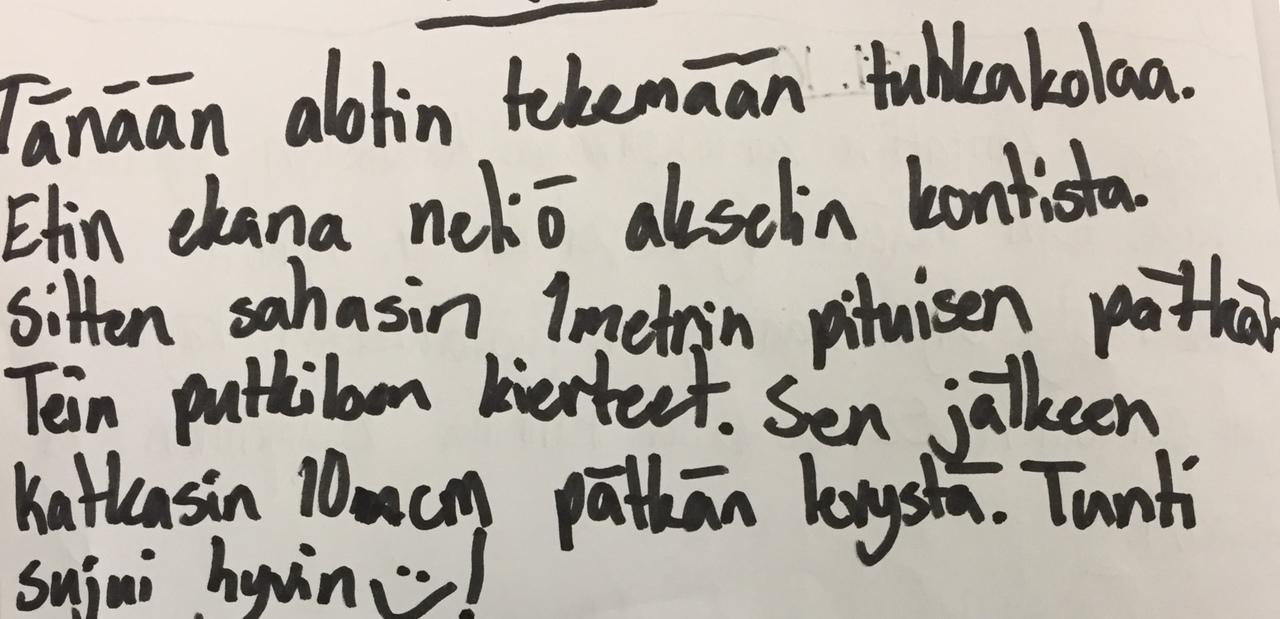 Tänään alotin tekemään tuhkakolaa.
Etin ekana neliö akselin kontista.
Sitten sahasin 1metrin pituisen pätkän
Tein putkiloon kierteet. Sen jälkeen
katkasin 10 cm pätkän levystä. Tunti
sujui hyvin !